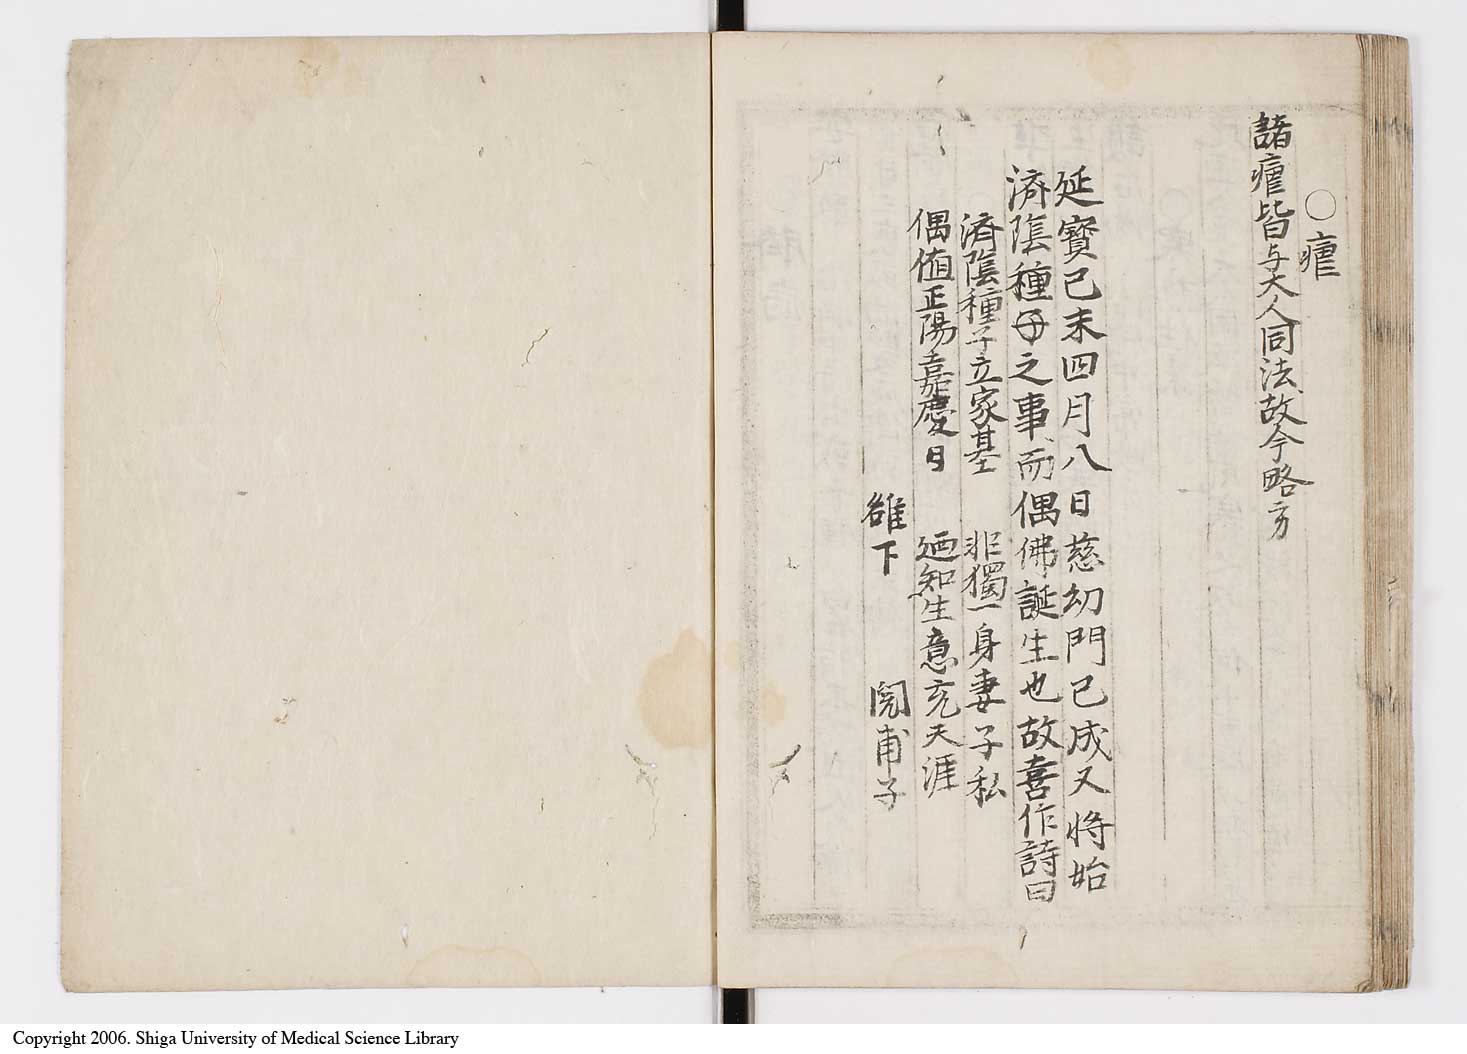 ○瘧
諸瘧皆与大人同法故今略方
延寶己未四月八日慈幼門已成又将始
済陰種子之事而偶佛誕生也故喜作詩曰
済陰種子立家基　非獨一身妻子私
偶値正陽嘉慶日　廼知生意充天涯
雒下　閲甫子
Copyright 2006. Shiga University of Medical Science Library